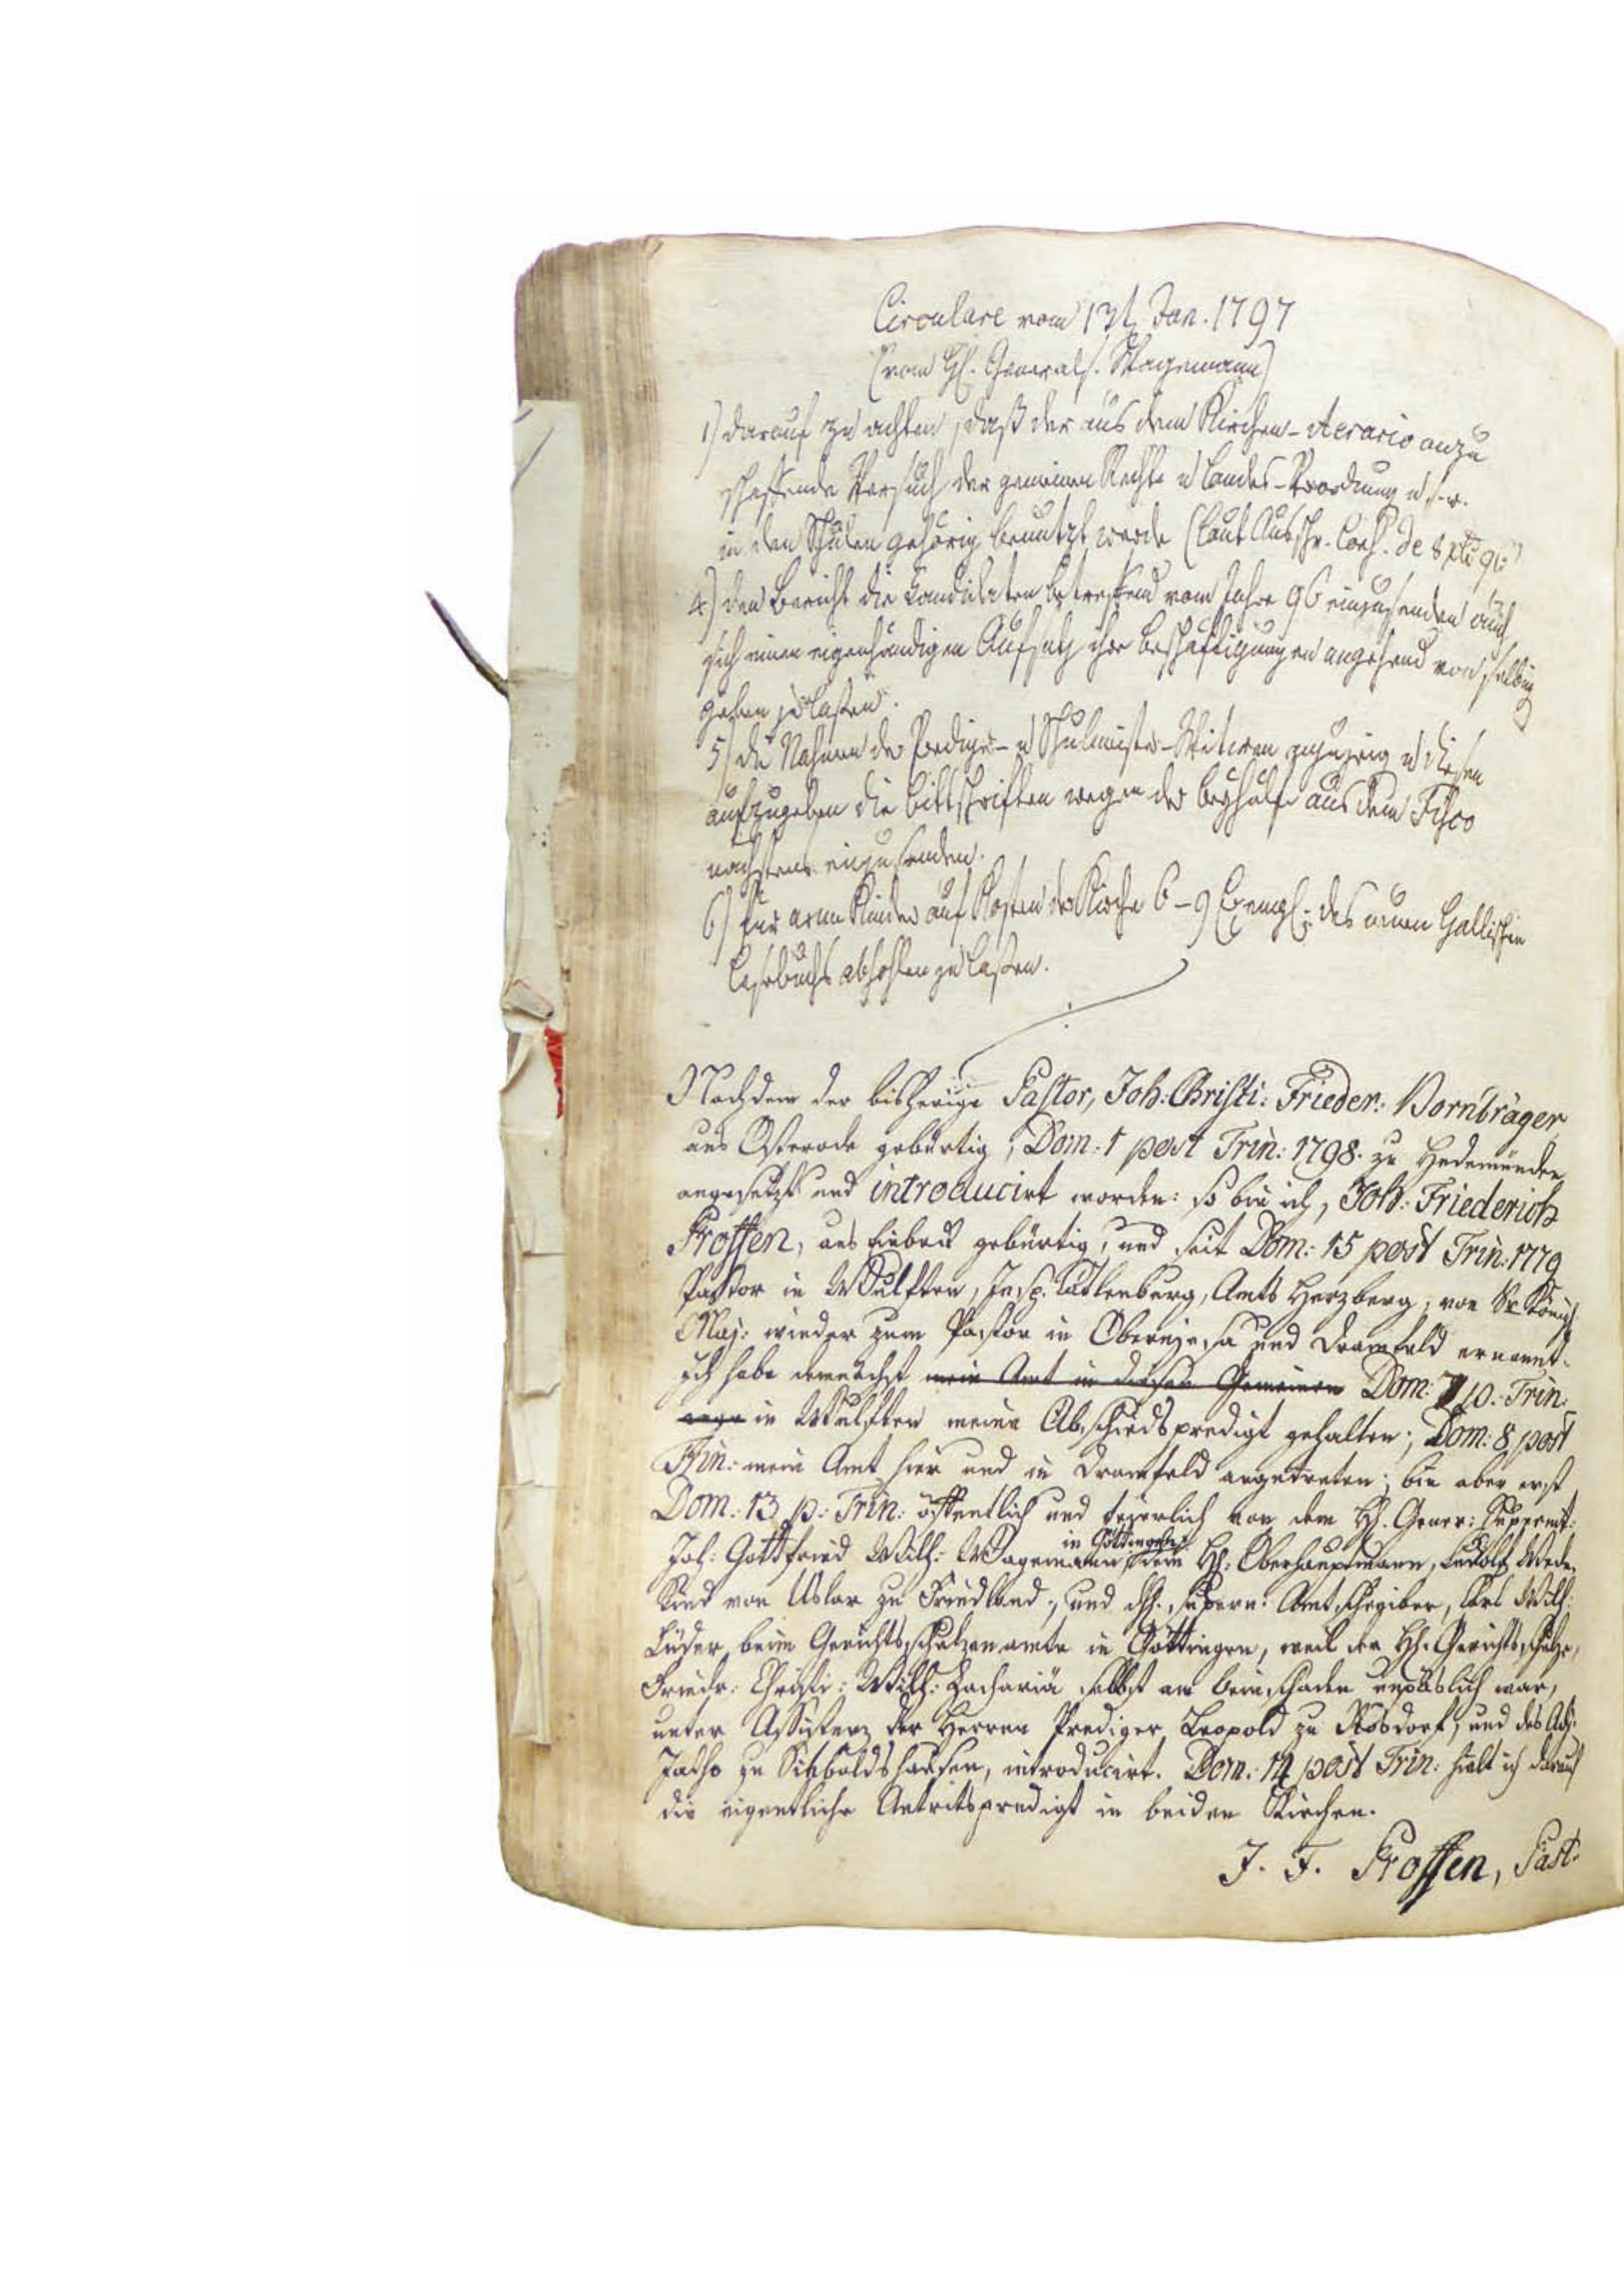 Circulare vom 13t Jan. 1797
(vom H. General S. Wagemann)
1) darauf zu achten, daß der aus dem Kirchen-Aerario anzu
schaffende Versuch der gemeinen Rechte u Landes-Verordnung u.s.w.
in den Schulen gehörig benutzt werde (laut Ausschr. Cons. de
4) den Bericht die Candidaten betreffend vom Jahre 96 einzusenden auch
sich einen eigenhändigen Aufsatz ihre Beschäftigungen angehend von selbig
geben zu laßen.
5) die Nahmen der Prediger- u Schulmeister-Witwen anzuzeig u diesen
aufzugeben die Bittschriften wegen der Beyhülfe aus dem Fisco
nächstens einzusenden.
6) für arme Kinder auf Kosten der Kirche 6-9 Exempl: des neuen Hallischen
Lesebuchs abhohlen zu laßen.
Nachdem der bisherige Pastor, Joh: Christi: Frieder: Vornträger
aus Osterode gebürtig, Dom: 1 post Trin: 1798. zu Hedemünden
angesetzt und introducirt worden: so bin ich, Joh: Friederich
Proffen, aus Einbeck gebürtig, und seit Dom: 15 post Trin: 1779
Pastor in Wulften, Insp. Catlenburg, Amts Herzberg, von Sr Königl
Maj: wieder zum Pastor in Oberniesa und Dramfeld ernannt.
Ich habe demnächst mein Amt in diesen Gemeinen Dom: 7 p. Trin:
in Wulften meine Abschiedspredigt gehalten; Dom: 8 post
Trin: mein Amt hier und in Dramfeld angetreten; bin aber erst
Dom: 13 p: Trin: öffentlich und feierlich von dem H. Gener: Superint:
Joh: Gottfried Wilh: Wagemann in Göttingen, dem H. Oberhauptmann, Ludolf Wede-
kind von Uslar zu Friedland, und H. Supern: Amtschreiber, Carl Wilh:
Lüder, beim Gerichtsschulzenamte in Göttingen, weil der H. Gerichtsschulze,
Friedr: Christi: Wilh: Zachariä selbst am Beinschaden unpäslich war,
unter Assistenz der Herren Prediger Leopold zu Rosdorf, und des Adj.
Jatho zu Sieboldshausen, introducirt. Dom: 14 post Trin: hielt ich darauf
die eigentliche Antritspredigt in beiden Kirchen.
J. F. Proffen, Past: